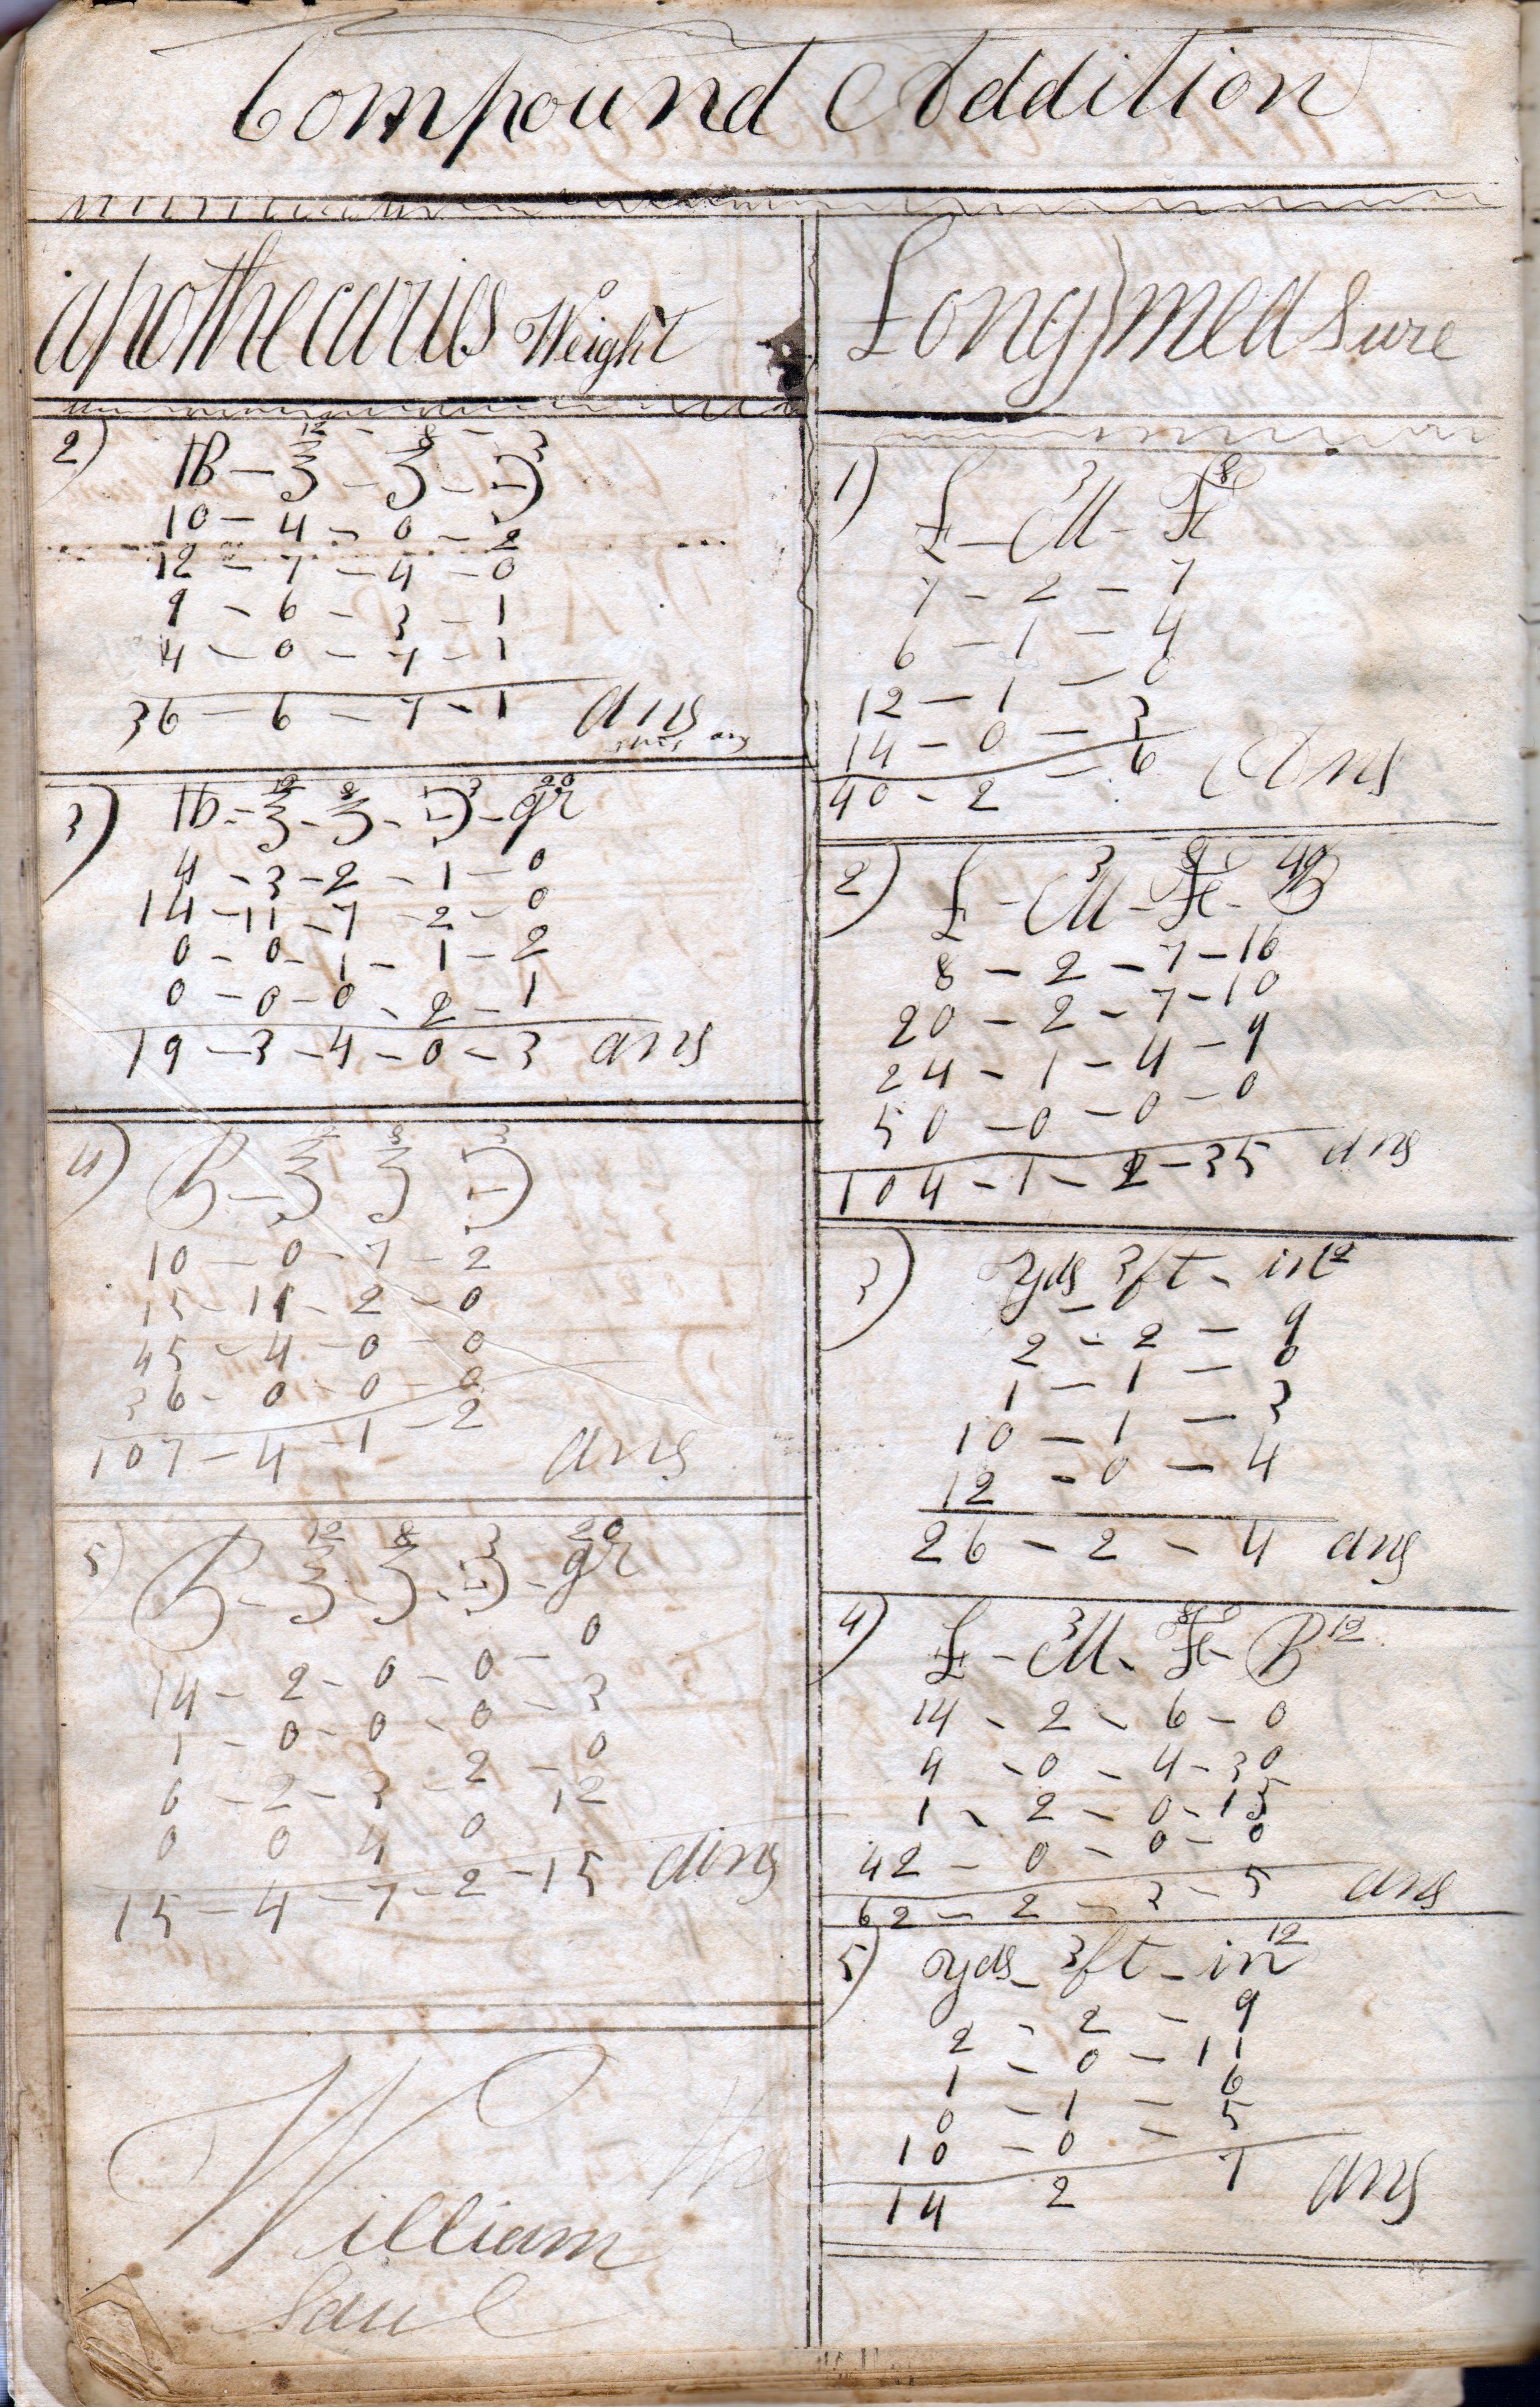 Compound Addition
apothecaries Weight
2)
12 - 8 - 3
lB - ℥ - ʒ - ℈
10 - 4 - 0 - 2
12 - 7 - 4 - 0
9 - 6 - 3 - 1
4 - 0 - 7 - 1
36 - 6 - 7 - 1 ans
3)
12 8 3 20
lb - ℥ - ʒ - ℈ - gr
4 - 3 - 2 - 1 - 0
14 - 11 - 7 - 2 - 0
0 - 0 - 1 - 1 - 2
0 - 0 - 0 - 2 - 1
19 - 3 - 4 - 0 - 3 ans
4)
12 8 3
B - ℥ ʒ ℈
10 - 0 - 7 - 2
15 - 11 - 2 - 0
45 - 4 - 0 - 0
36 - 0 - 0 - 0
107 - 4 - 1 - 2 ans
5)
12 8 3 20
B - ℥ - ʒ - ℈ - gr
14 - 2 - 0 - 0 - 0
1 - 0 - 0 - 0 - 3
6 - 2 - 3 - 2 - 0
0 0 4 0 12
15 - 4 - 7 - 2 - 15 ans
William
Saul
Long measure
1)
L - 3M - Fr 8
7 - 2 - 7
6 - 1 - 4
12 - 1 - 0
14 - 0 - 3
40 - 2 - 6 Ans
2)
L - 3M - 8Fr - 40P
8 - 2 - 7 - 16
20 - 2 - 7 - 10
24 - 1 - 4 - 9
50 - 0 - 0 - 0
104 - 1 - 2 - 35 ans
3)
yds 3ft - in 12
2 - 2 - 9
1 - 1 - 0
10 - 1 - 3
12 - 0 - 4
26 - 2 - 4 ans
4)
L - 3M - 8Fr - P 12
14 - 2 - 6 - 0
4 - 0 - 4 - 30
1 - 2 - 0 - 15
42 - 0 - 0 - 0
62 - 2 - 3 - 5 ans
5)
yds - 3ft - in 12
2 - 2 - 9
1 - 0 - 11
0 - 1 - 6
10 - 0 - 5
14 2 7 ans